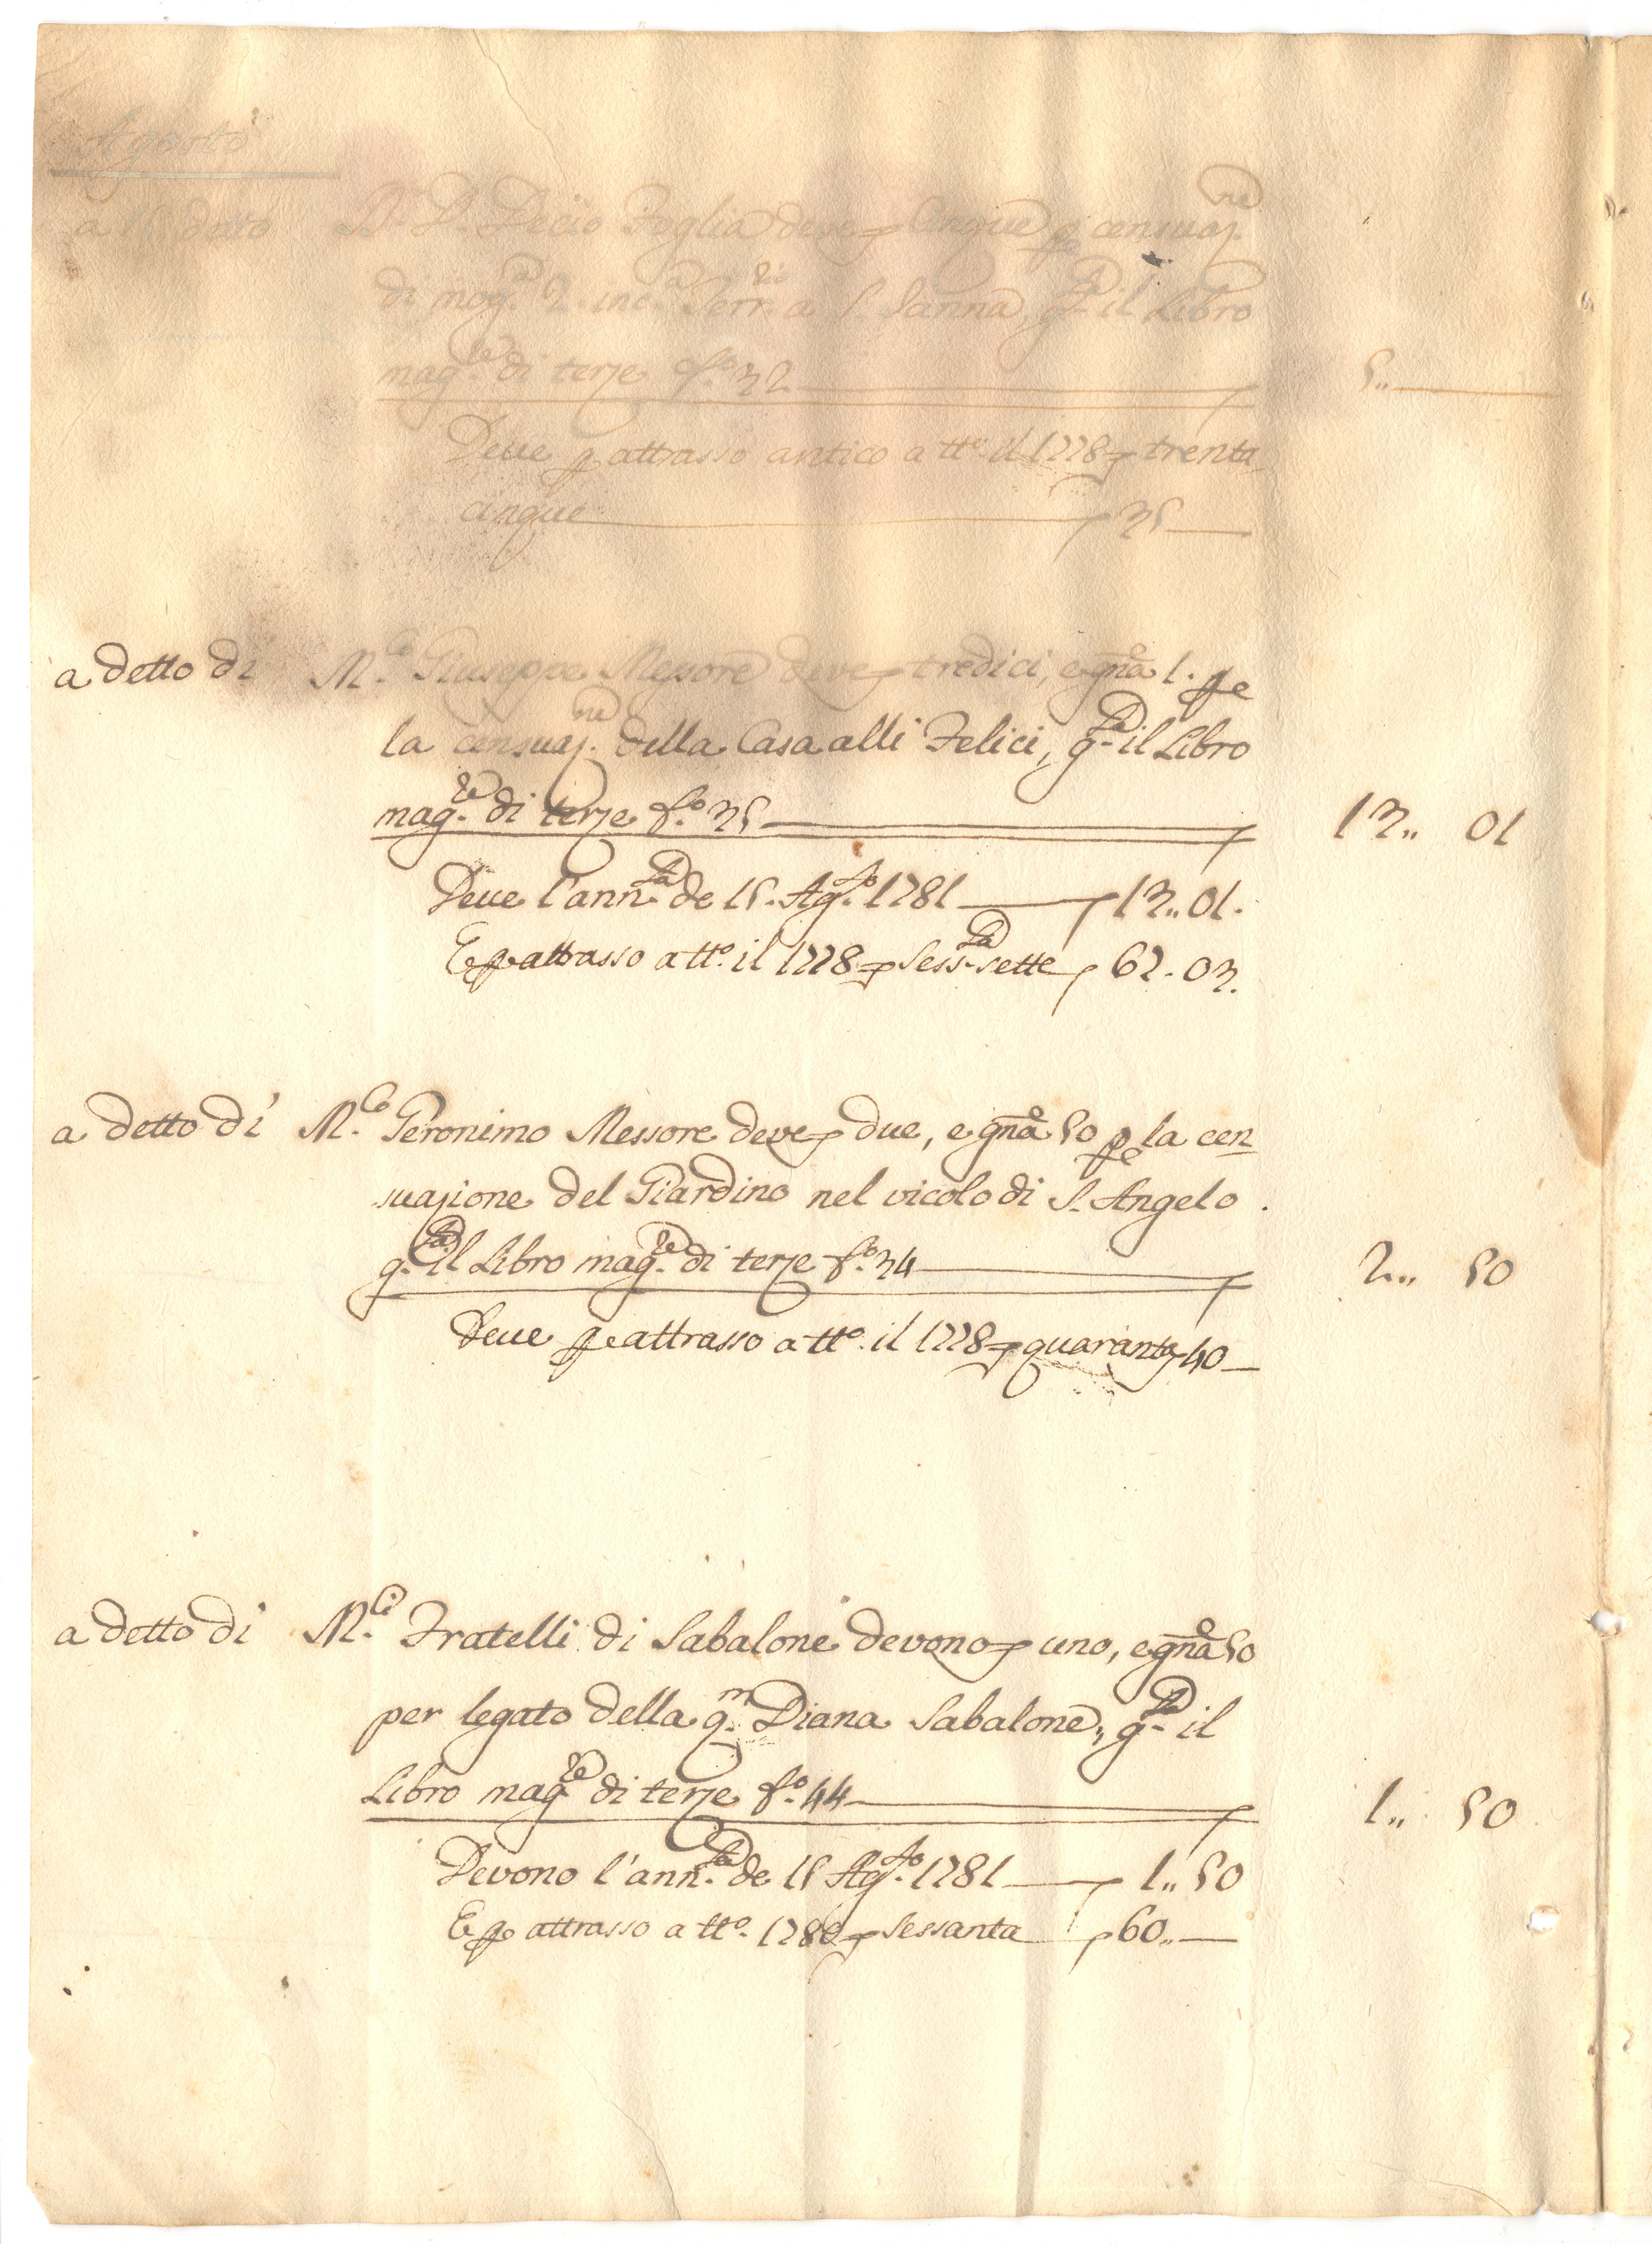 Agosto
a 15 detto D. D. Decio Foglia deve cinque p censuaz.ne
di mog.a 2. inc.a Terr.rio a S. Janna, q.ta il Libro
mag.re di terze f.o 32 5..
Deve p attrasso antico a tt.o il 1778 trenta
cinque 35
a detto dì M.co Giuseppe Messore deve tredici, e gña 1. pe
la censuaz.ne della Casa alli Felici, q.ta il Libro
mag.re di terze f.o 35 13.. 01
Deve l'ann.ta de 15. Ag.to 1781 13.. 01.
E p attrasso a tt.o il 1778 sess.ta sette 67. 03.
a detto dì M.co Geronimo Messore deve due, e gña 50 pe la cen
suazione del Giardino nel vicolo di S. Angelo.
q.ta il Libro mag.re di terze f.o 34 2.. 50
Deve pe attrasso a tt.o il 1778 quaranta 40
a detto dì M.ci Fratelli di Sabalone devono uno, e gña 50
per legato della q.m Diana Sabalone, q.ta il
Libro mag.re di terze f.o 44 1.. 50
Devono l'ann.ta de 15 Ag.to 1781 1.. 50
E p attrasso a tt.o 1780 sessanta 60..